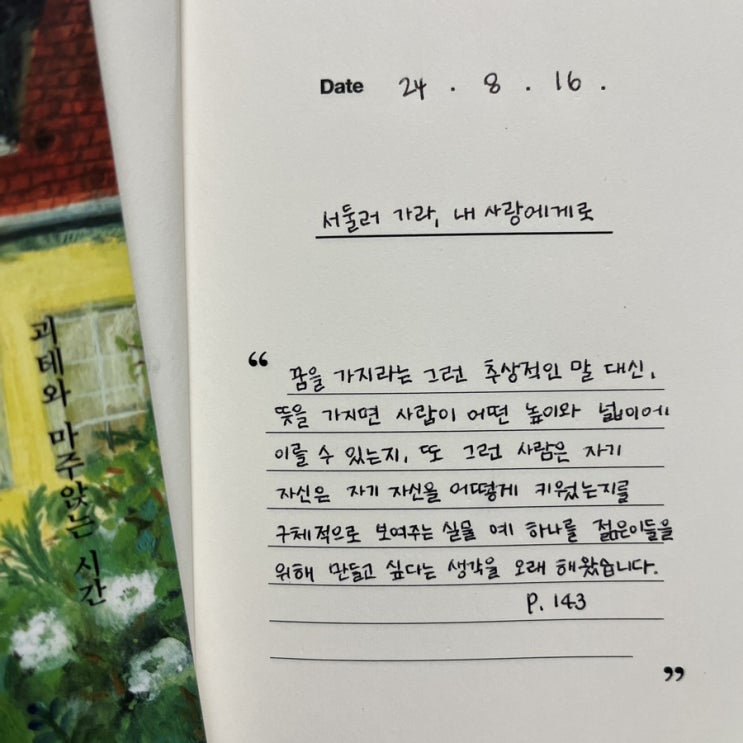 괴테와 마주앉는 시간
Date 24 . 8 . 16 .
서둘러 가라, 내 사랑에게로
“
꿈을 가지라는 그런 추상적인 말 대신,
뜻을 가지면 사람이 어떤 높이와 넓이에
이를 수 있는지, 또 그런 사람은 자기
자신은 자기 자신을 어떻게 키웠는지를
구체적으로 보여주는 실물 예 하나를 젊은이들을
위해 만들고 싶다는 생각을 오래 해왔습니다.
P. 143
”